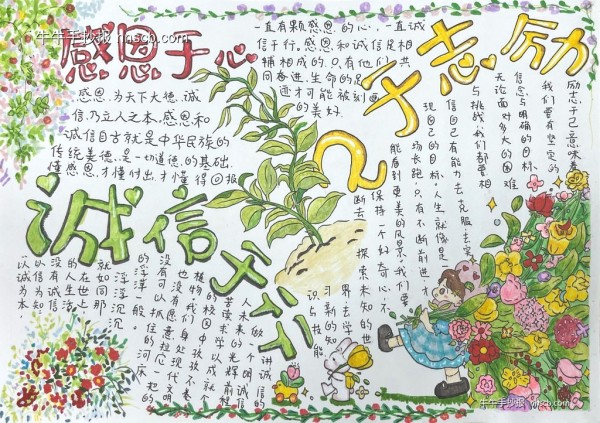 牛牛手抄报 nnscb.com
感恩于心
感恩，为天下大德、诚
信，乃立人之本，感恩和
诚信自古就是中华民族的
传统美德、是一切道德的基础，
懂感恩，才懂付出，才懂得回报
一直有颗感恩的心，一直诚
信于行，感恩和诚信是相
辅相成的，只有他们共
同奋进，生命的足
迹才可能被刻画
的美好
励志于己
励志于己意味着
我们要有坚定的
信念与明确的目标，
无论面对多大的困难
与挑战，我们都要相
信自己有能力去克服去实
现自己的目标，人生就像是一
场长跑，只有不断前进，才
能看到更美的风景，我们要
保持一份好奇心，不
断去探索未知的世
界去学
习新的知
识与技能
诚信于行
讲诚信的
做一个
的浮萍一般
浮浮沉沉
就如同那
在世上
的人生活
没有诚信
以信为知
以诚为本
牛牛手抄报 nnscb.com